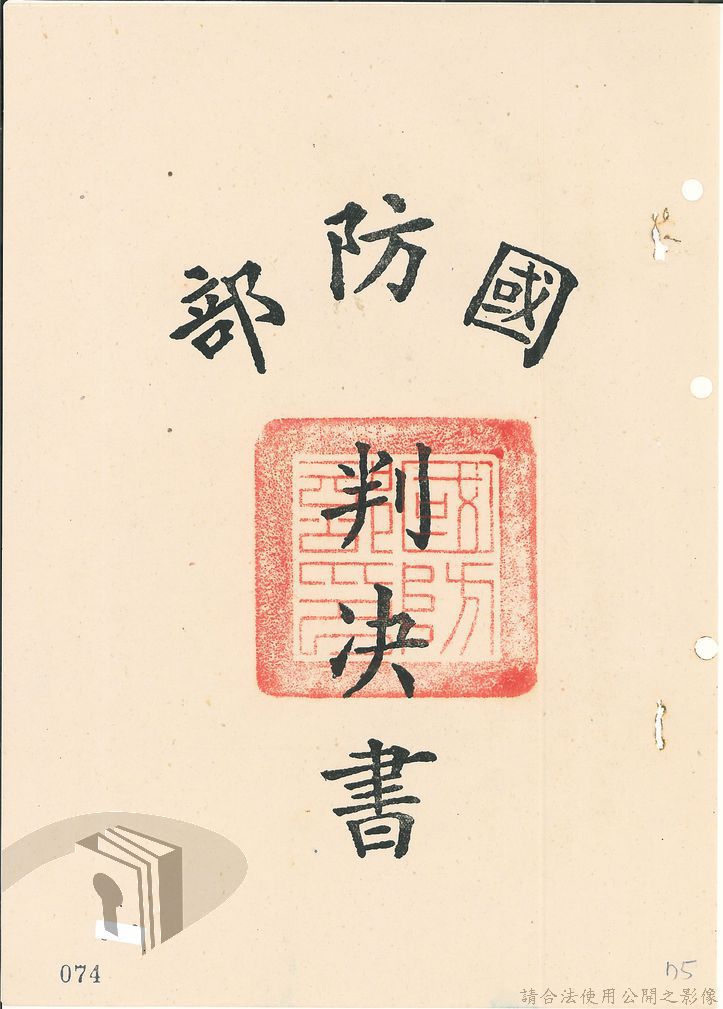 國防部
判決書
國防部印
074
75
請合法使用公開之影像